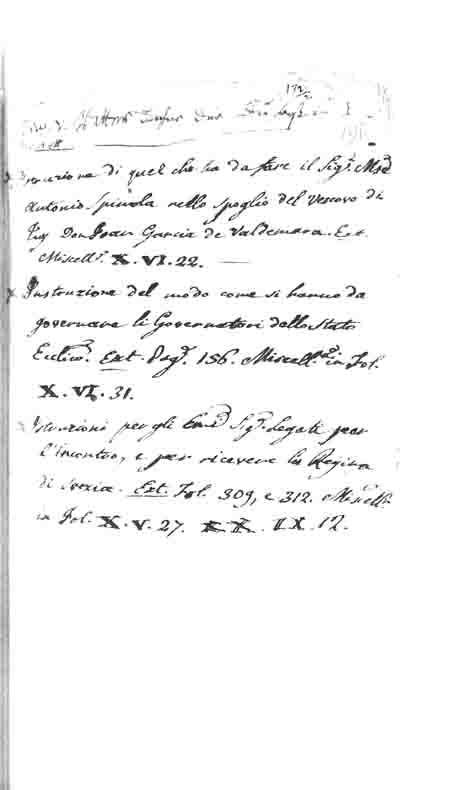 172/2
Instruzione di quel che ha da fare il Sigr. Msr.
Antonio Spinola nello spoglio del Vescovo di
Don Joan Garcia de Valdemara. Ext.
Miscell. X. VI. 22.
Instruzione del modo come si hanno da
governare li Governatori dello Stato
Ecclico. Ext. Pag. 156. Miscell.a in fol.
X. VI. 31.
Istruzioni per gli Emi. Sigri. Legati per
l'incontro, e per ricevere la Regina
di Svezia. Ext. Fol. 309, e 312. Miscell.
in Fol. X. V. 27. IX. 12.